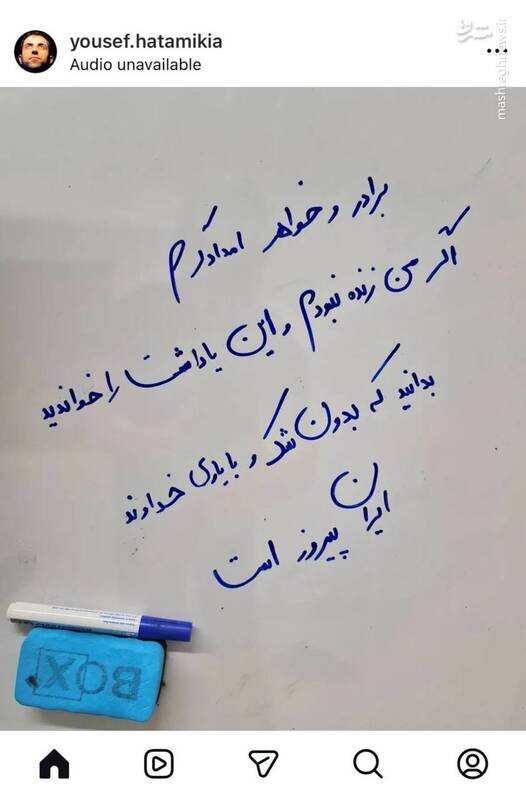 yousef.hatamikia
Audio unavailable
مشرق
mashreghnews.ir
برادر و خواهر امدادگرم
اگر من زنده نبودم و این یاداشت را خواندید
بدانید که بدون شک و با یاری خداوند
ایران پیروز است
BOX